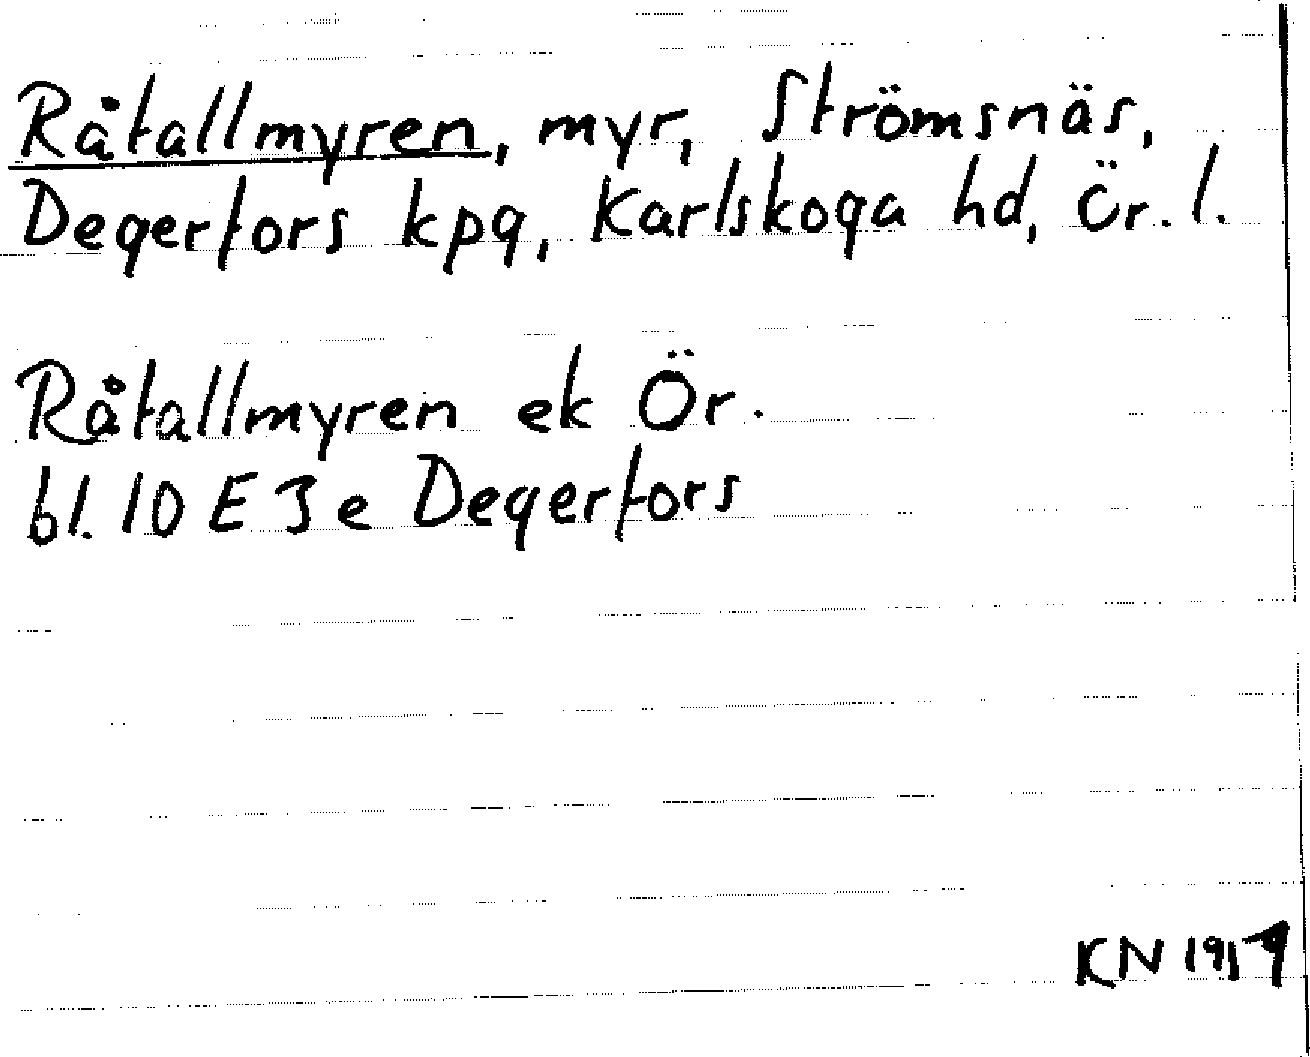 Råtallmyren, myr, Strömsnäs,
Degerfors kpg, Karlskoga hd, Ör. l.
Råtallmyren ek Ör.
bl. 10 E 3e Degerfors
KN